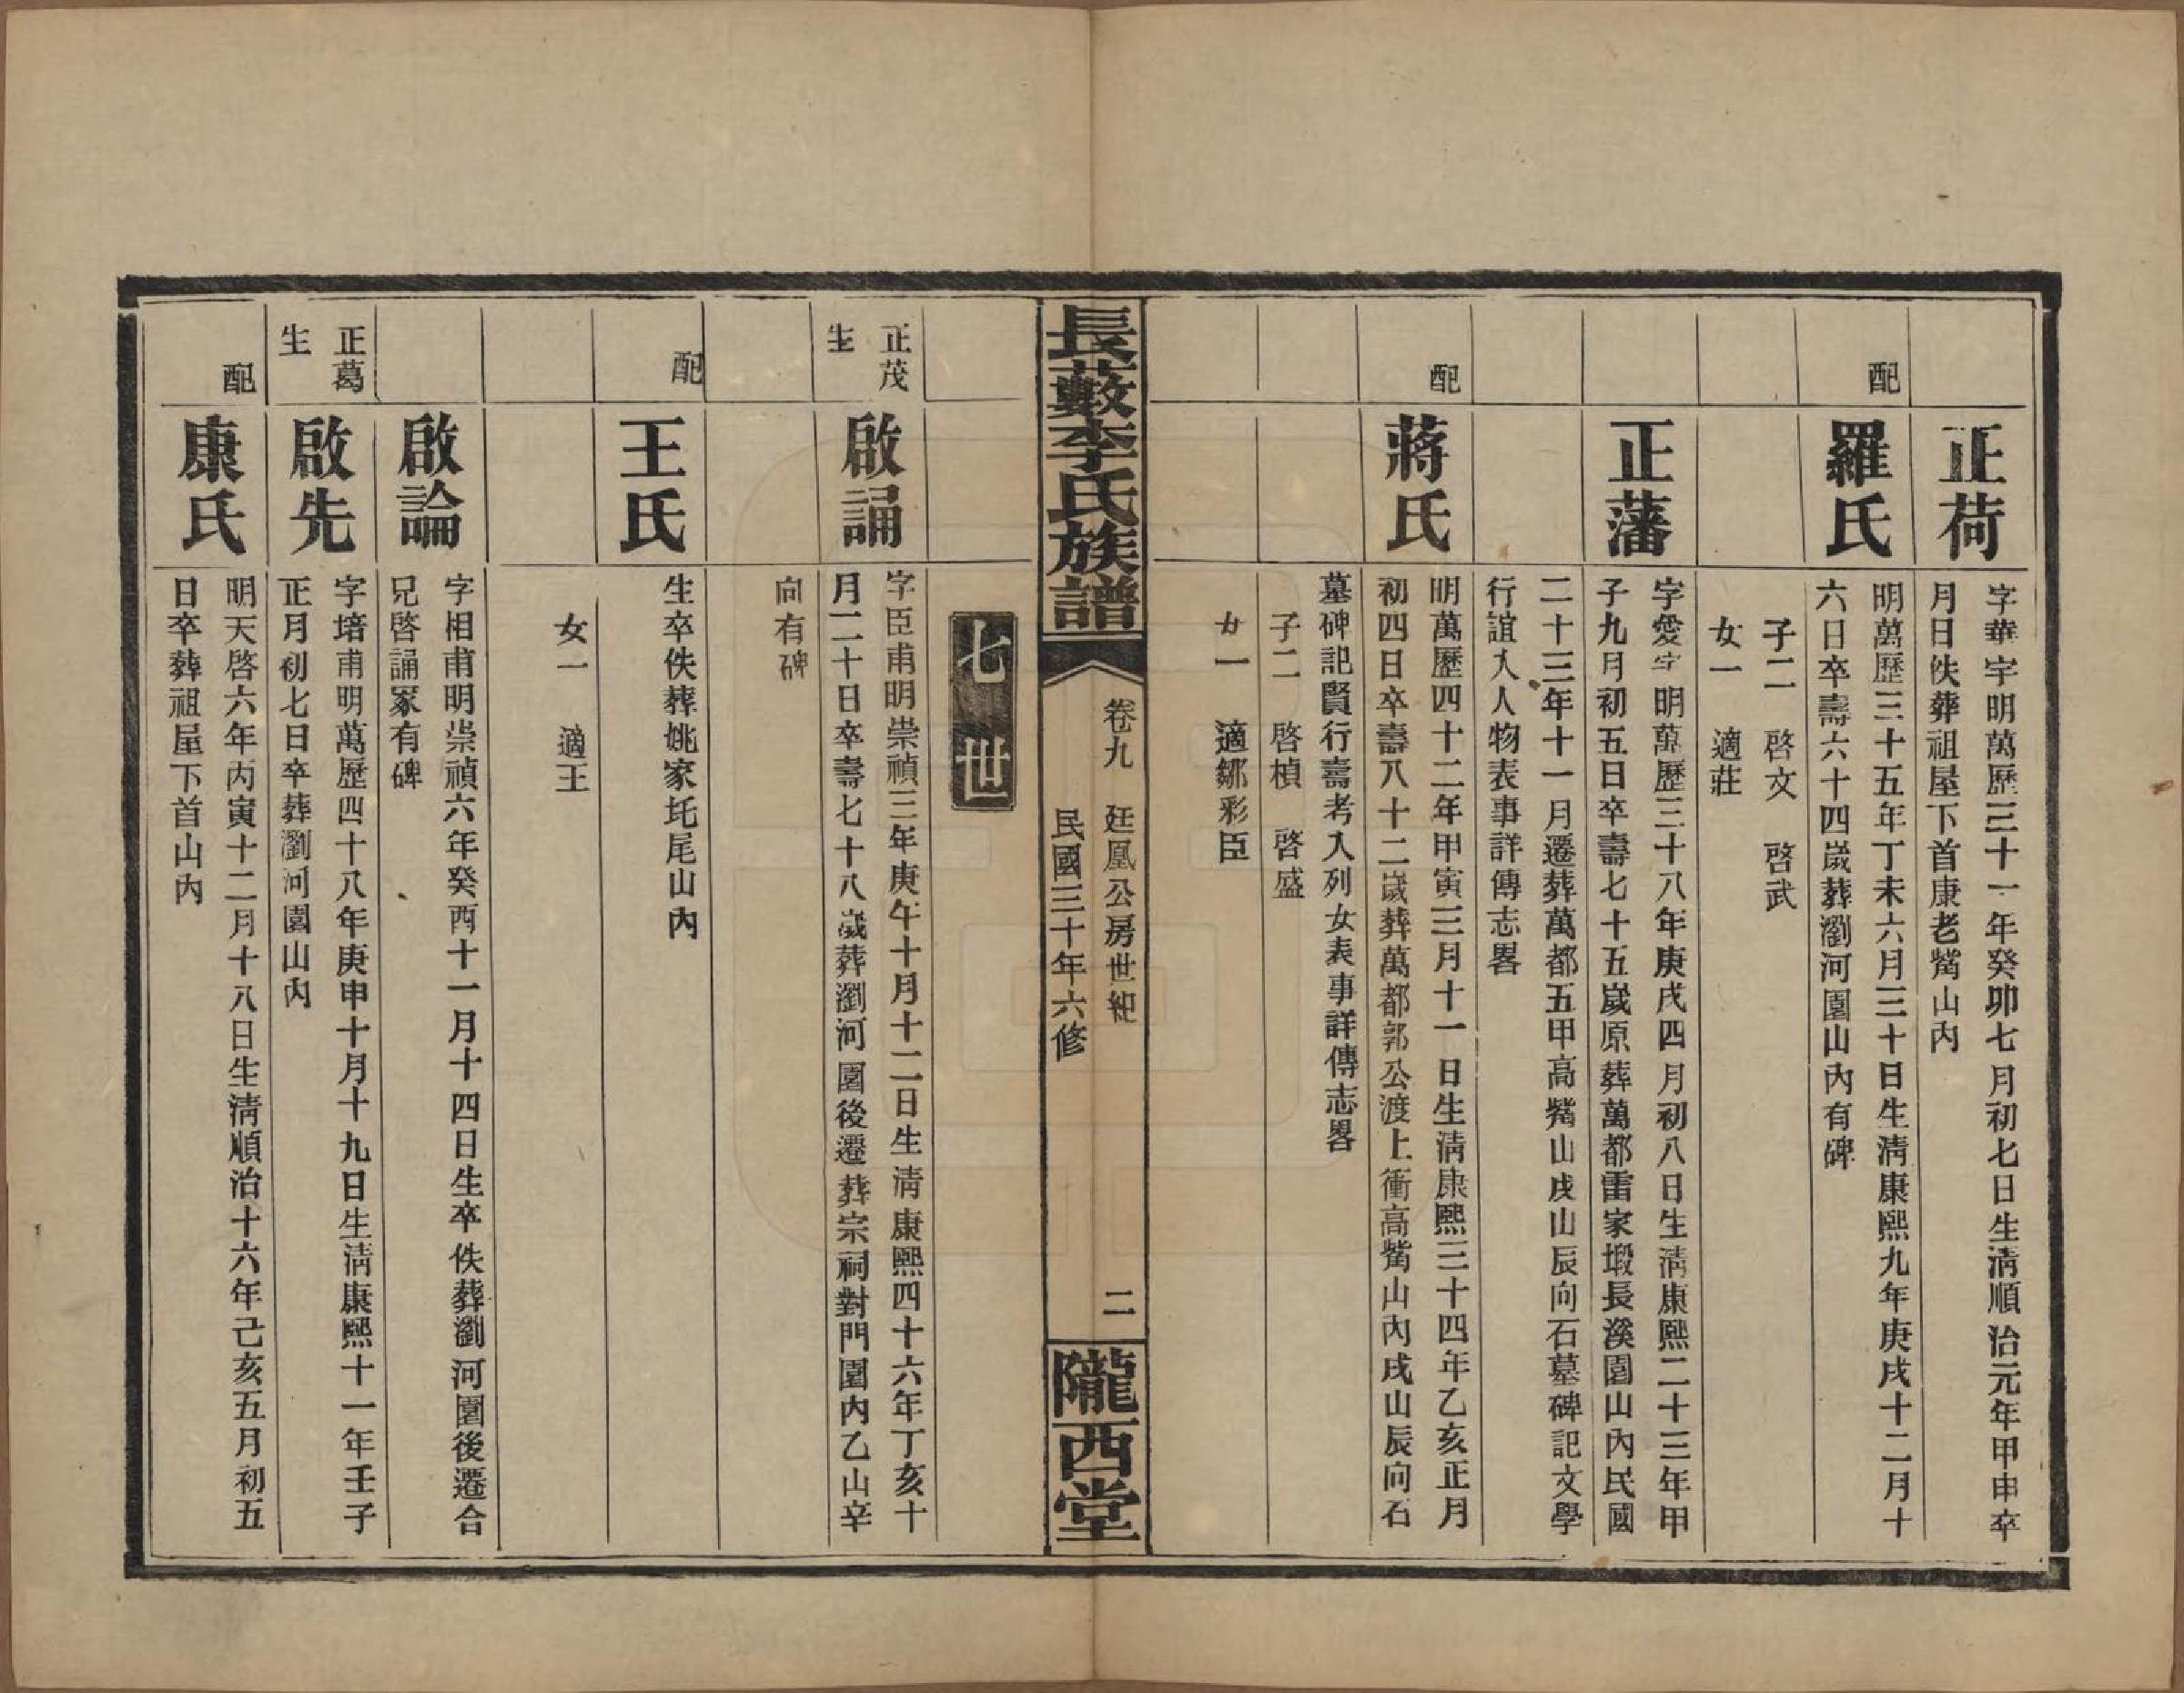 正荷
字華宇明萬歷三十一年癸卯七月初七日生淸順治元年甲申卒
月日佚葬祖屋下首康老觜山內
配
羅氏
明萬歷三十五年丁未六月三十日生淸康熙九年庚戌十二月十
六日卒壽六十四歲葬瀏河園山內有碑
子二 啓文 啓武
女一 適莊
正藩
字愛宇明萬歷三十八年庚戌四月初八日生淸康熙二十三年甲
子九月初五日卒壽七十五歲原葬萬都雷家塅長溪園山內民國
二十三年十一月遷葬萬都五甲高觜山戌山辰向石墓碑記文學
行誼入人物表事詳傳志畧
配
蔣氏
明萬歷四十二年甲寅三月十一日生淸康熙三十四年乙亥正月
初四日卒壽八十二歲葬萬都郭公渡上衝高觜山內戌山辰向石
墓碑記賢行壽考入列女表事詳傳志畧
子二 啓楨 啓盛
女一 適鄒彩臣
長藪李氏族譜
卷九 廷凰公房世紀 二
民國三十年六修
隴西堂
七世
正茂
生
啟誦
字臣甫明崇禎三年庚午十月十二日生淸康熙四十六年丁亥十
月二十日卒壽七十八歲葬瀏河園後遷葬宗祠對門園內乙山辛
向有碑
配
王氏
生卒佚葬姚家坉尾山內
女一 適王
啟論
字相甫明崇禎六年癸酉十一月十四日生卒佚葬瀏河園後遷合
兄啓誦冢有碑
正葛
生
啟先
字培甫明萬歷四十八年庚申十月十九日生淸康熙十一年壬子
正月初七日卒葬瀏河園山內
配
康氏
明天啓六年丙寅十二月十八日生淸順治十六年己亥五月初五
日卒葬祖屋下首山內